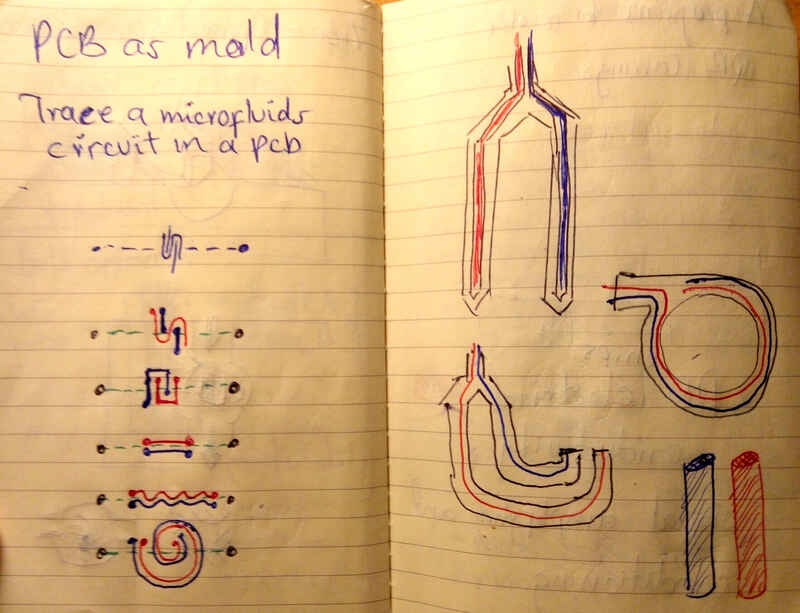 PCB as mold
Trace a microfluids
circuit in a pcb